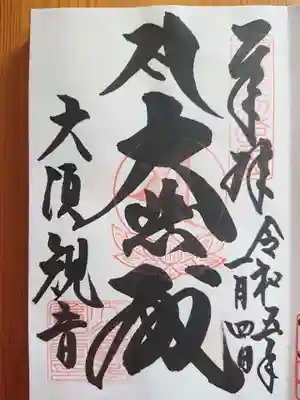 奉拝
令和五年
一月四日
大悲殿
大須観音